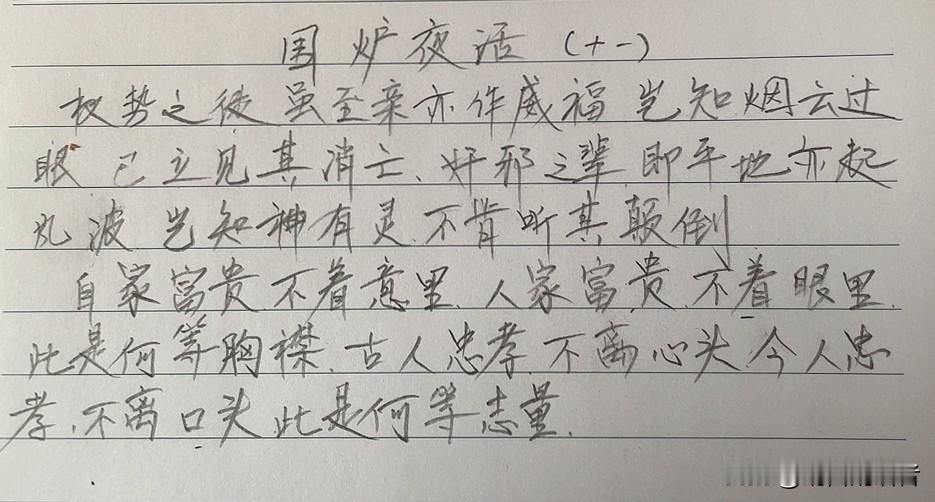 围炉夜话（十一）
权势之徒虽至亲亦作威福岂知烟云过
眼已立见其消亡、奸邪之辈、即平地亦起
风波岂知神有灵、不肯听其颠倒
自家富贵不着意里、人家富贵、不着眼里、
此是何等胸襟、古人忠孝、不离心头今人忠
孝、不离口头此是何等志量、